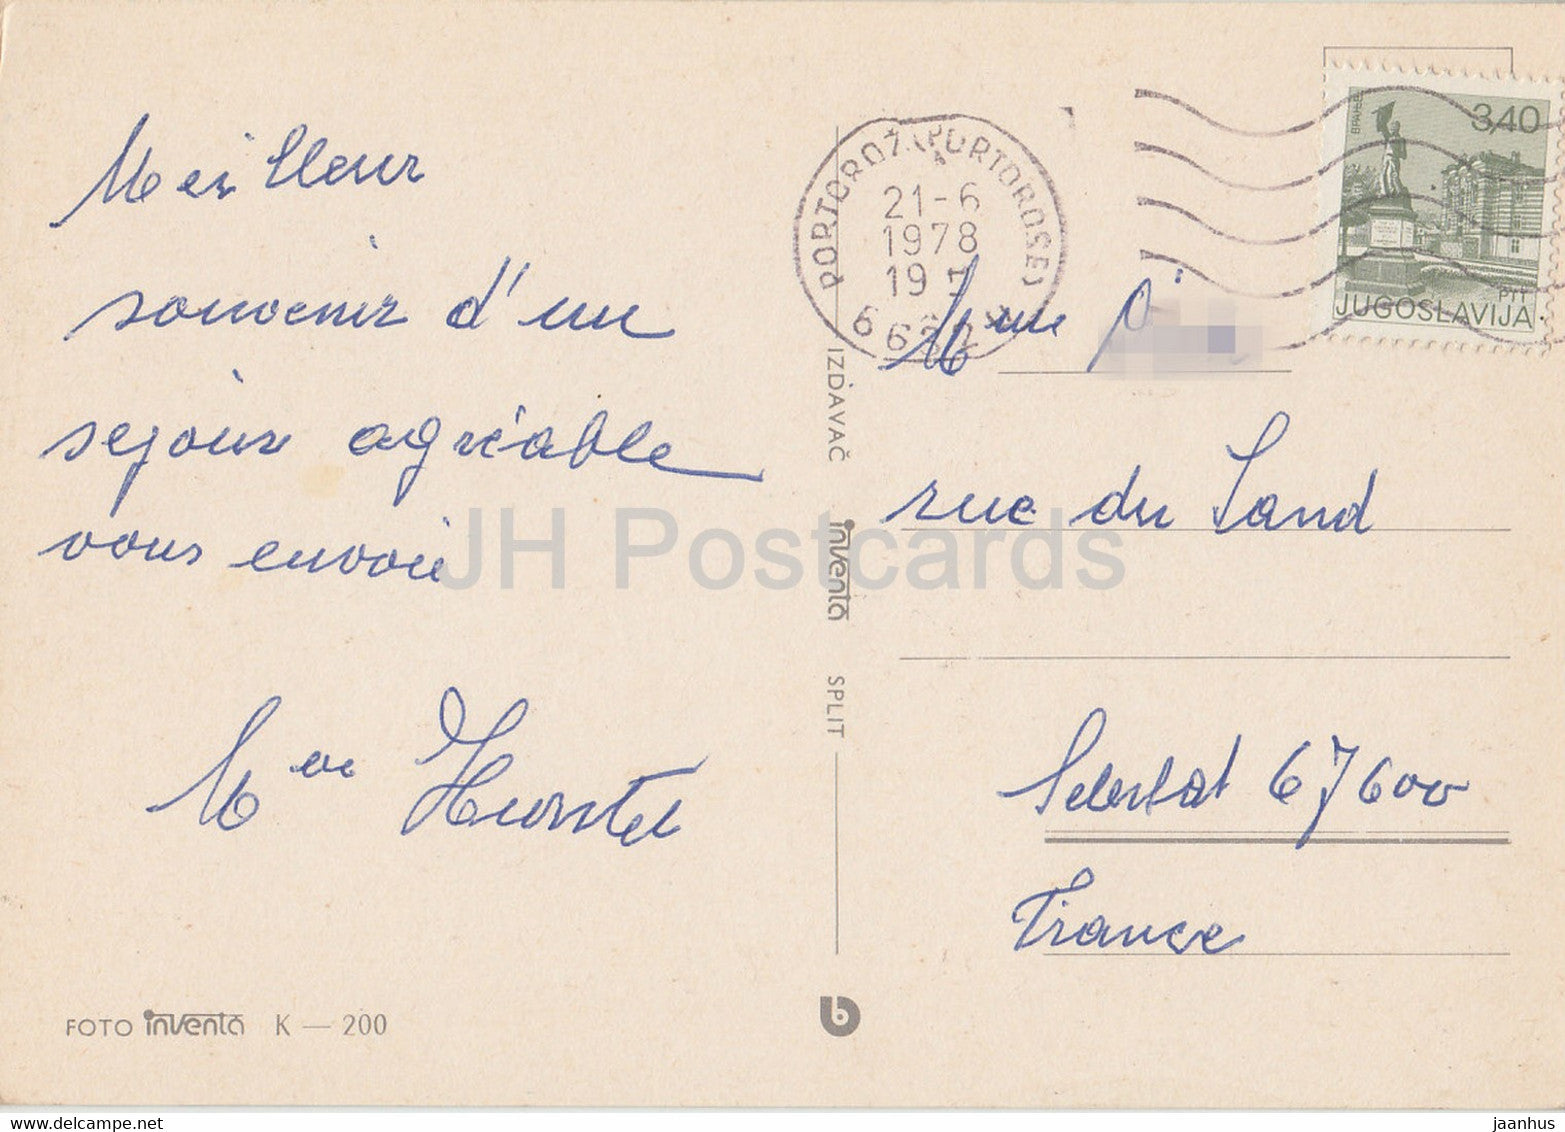 Meilleur
souvenir d'un
sejour agréable
vous envoie
Mme
FOTO inventa K — 200
IZDAVAČ inventa SPLIT
PORTOROŽ (PORTOROSE)
21-6
1978
19
ВРАЊЕ
3,40
PTT
JUGOSLAVIJA
Mme
rue du Sand
Selestat 67600
France
JH Postcards
www.delcampe.net
jaanhus